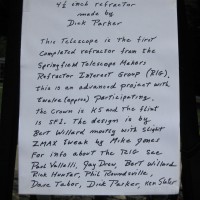 4½ inch refractor
made by
Dick Parker
This Telescope is the first
completed refractor from the
Springfield Telescope Makers
Refractor Interest Group (RIG),
this is an advanced project with
twelve (approx) participating.
the Crown is K5 and the Flint
is SF1. The design is by
Bert Willard mostly with slight
ZMAX tweak by Mike Jones
For info about the RIG see
Paul Valleli, Jay Drew, Bert Willard
Rick Hunter, Phil Rounseville,
Dave Tabor, Dick Parker, Ken Slater